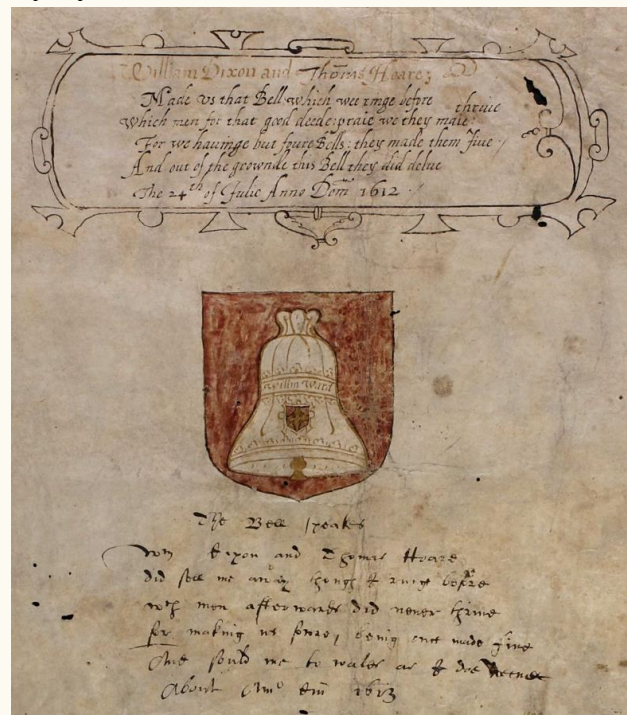 William Dixon and Thomas Hoare
Made vs that Bell which wee ringe before
thruie
Which men for that good deede praie we they maie
For we hauinge but foure Bells: they made them fiue
And out of the grownde this Bell they did delue
The 24th of Iulie Anno Dom 1612
Willm Ward
The Bell speakes
Wm Dixon and Thomas Hoare
did sell me away though I runge before
wch men afterwards did never thrive
for making us fowre, being once made five
And sould me to wales as I doe
About Ano Dm 1613